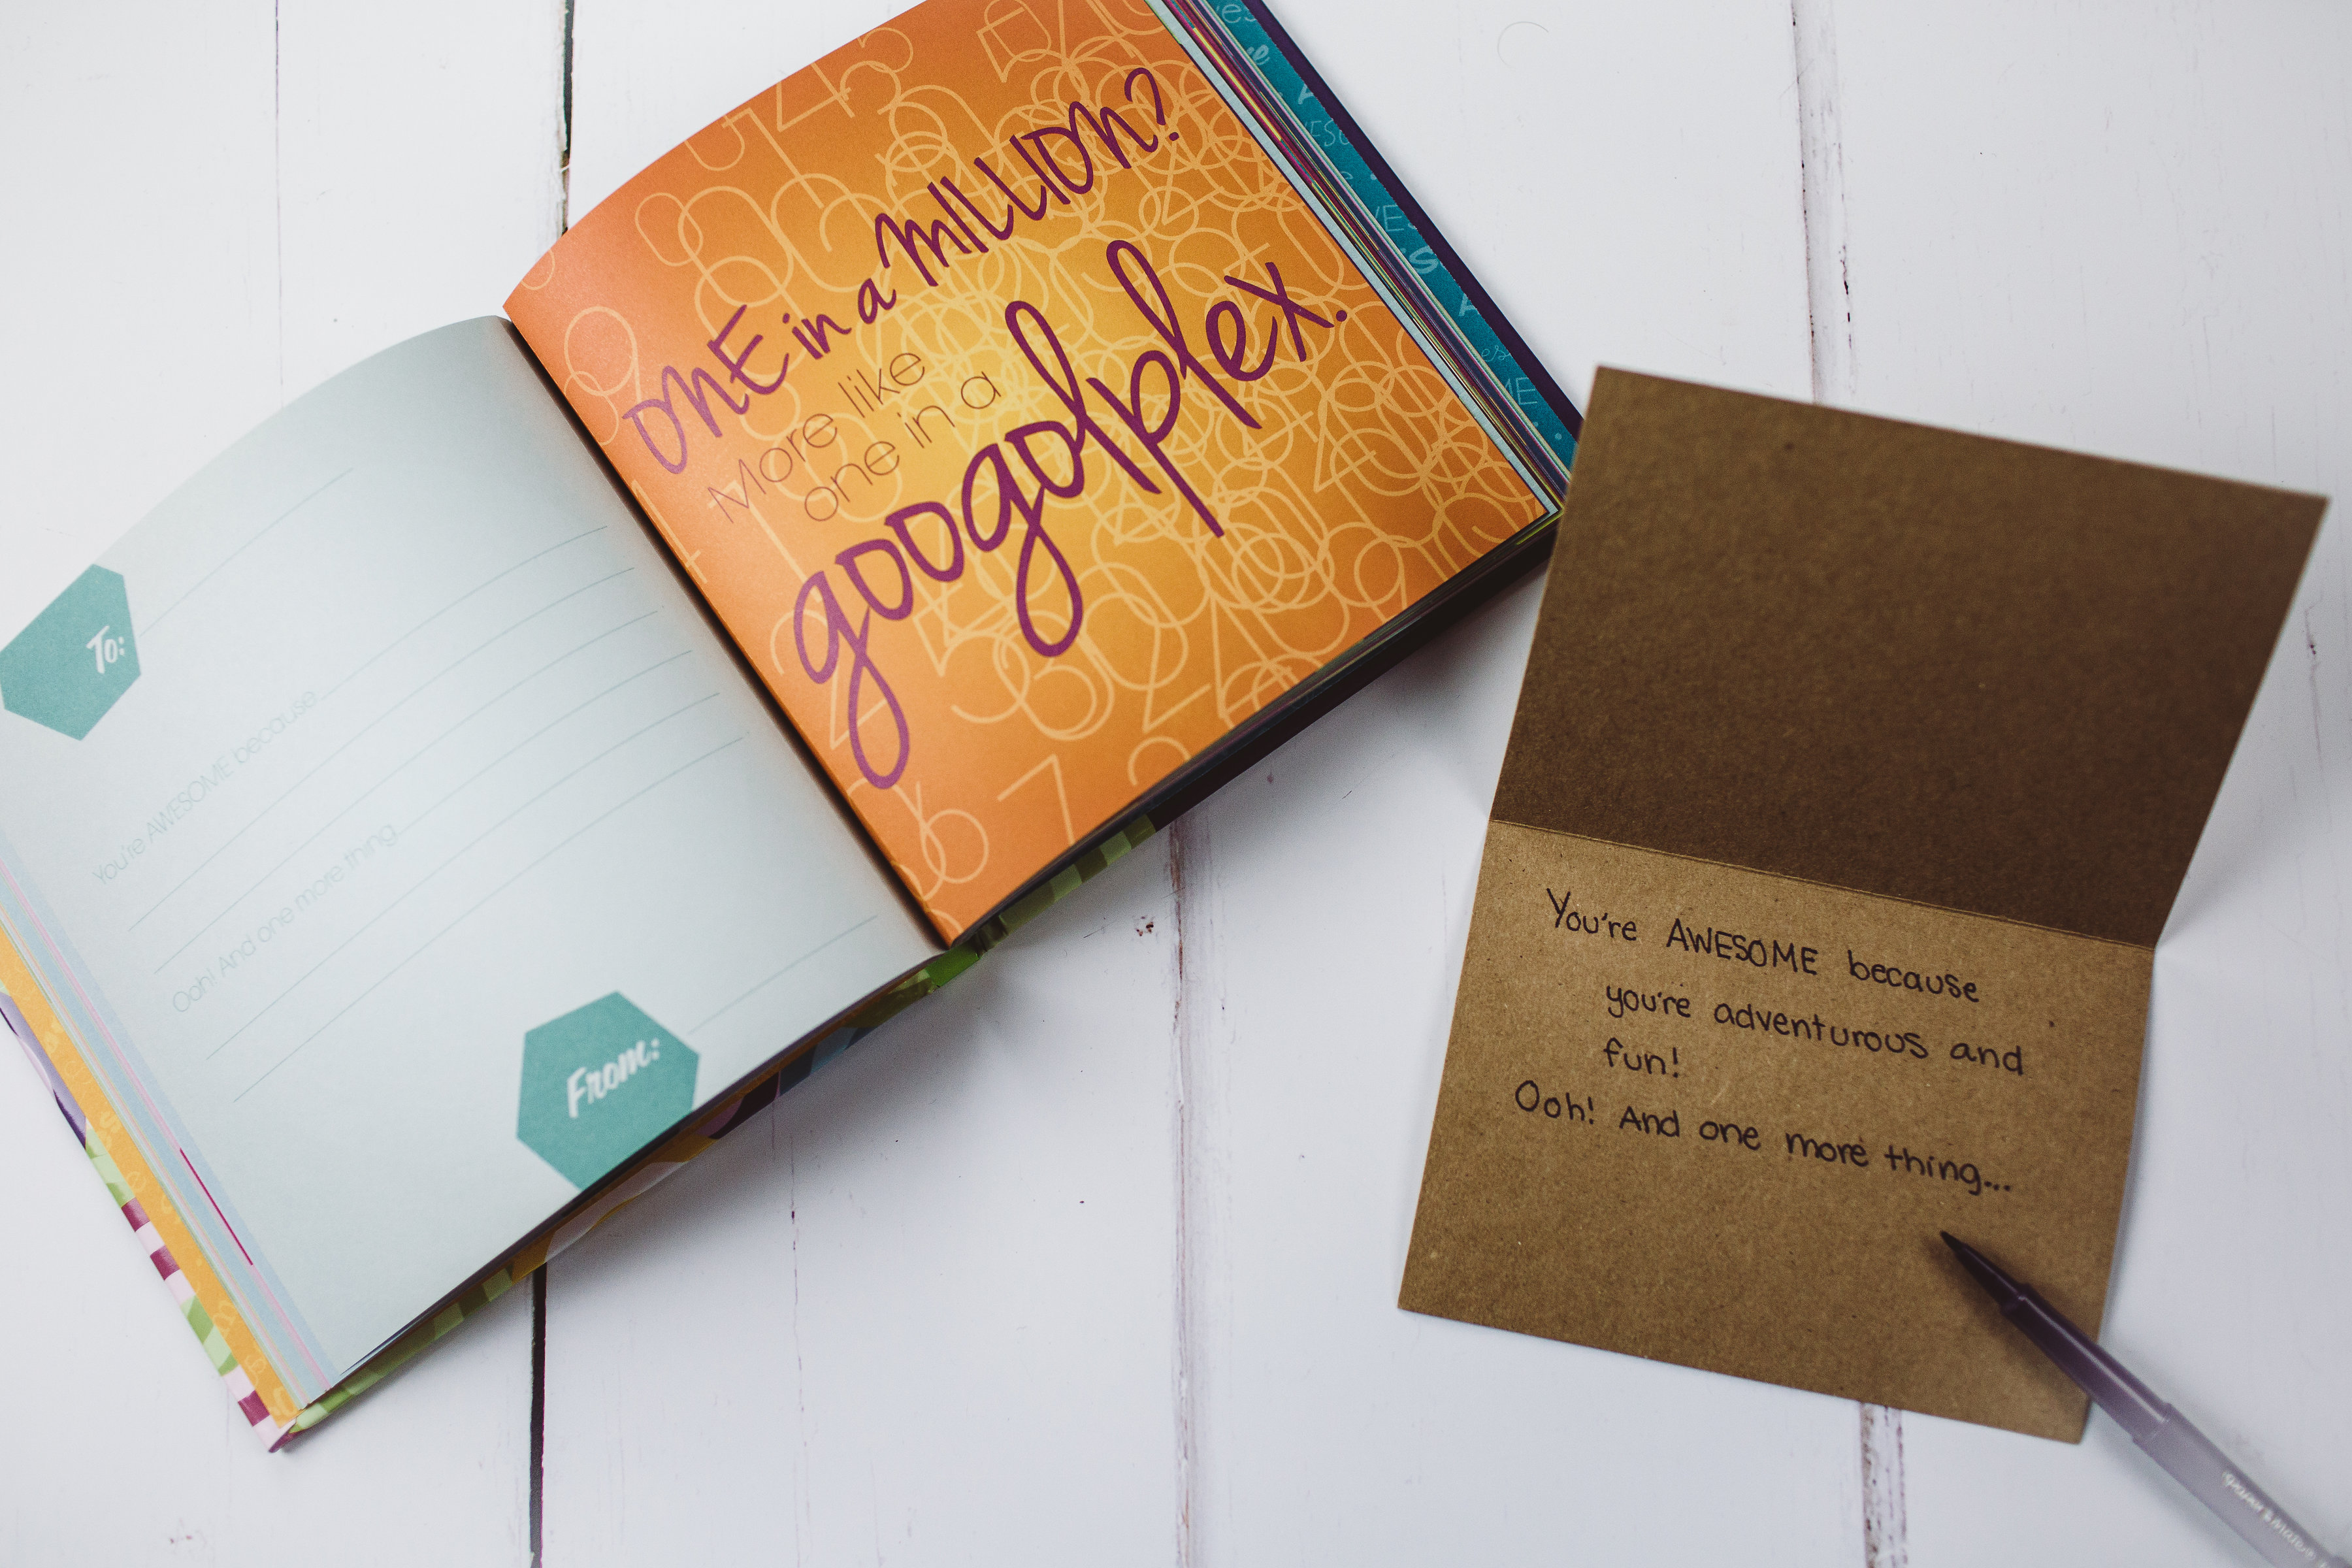 To:
You're AWESOME because
Ooh! And one more thing
From:
ONE in a MILLION?
More like
one in a
googolplex.
You're AWESOME because
you're adventurous and
fun!
Ooh! And one more thing...